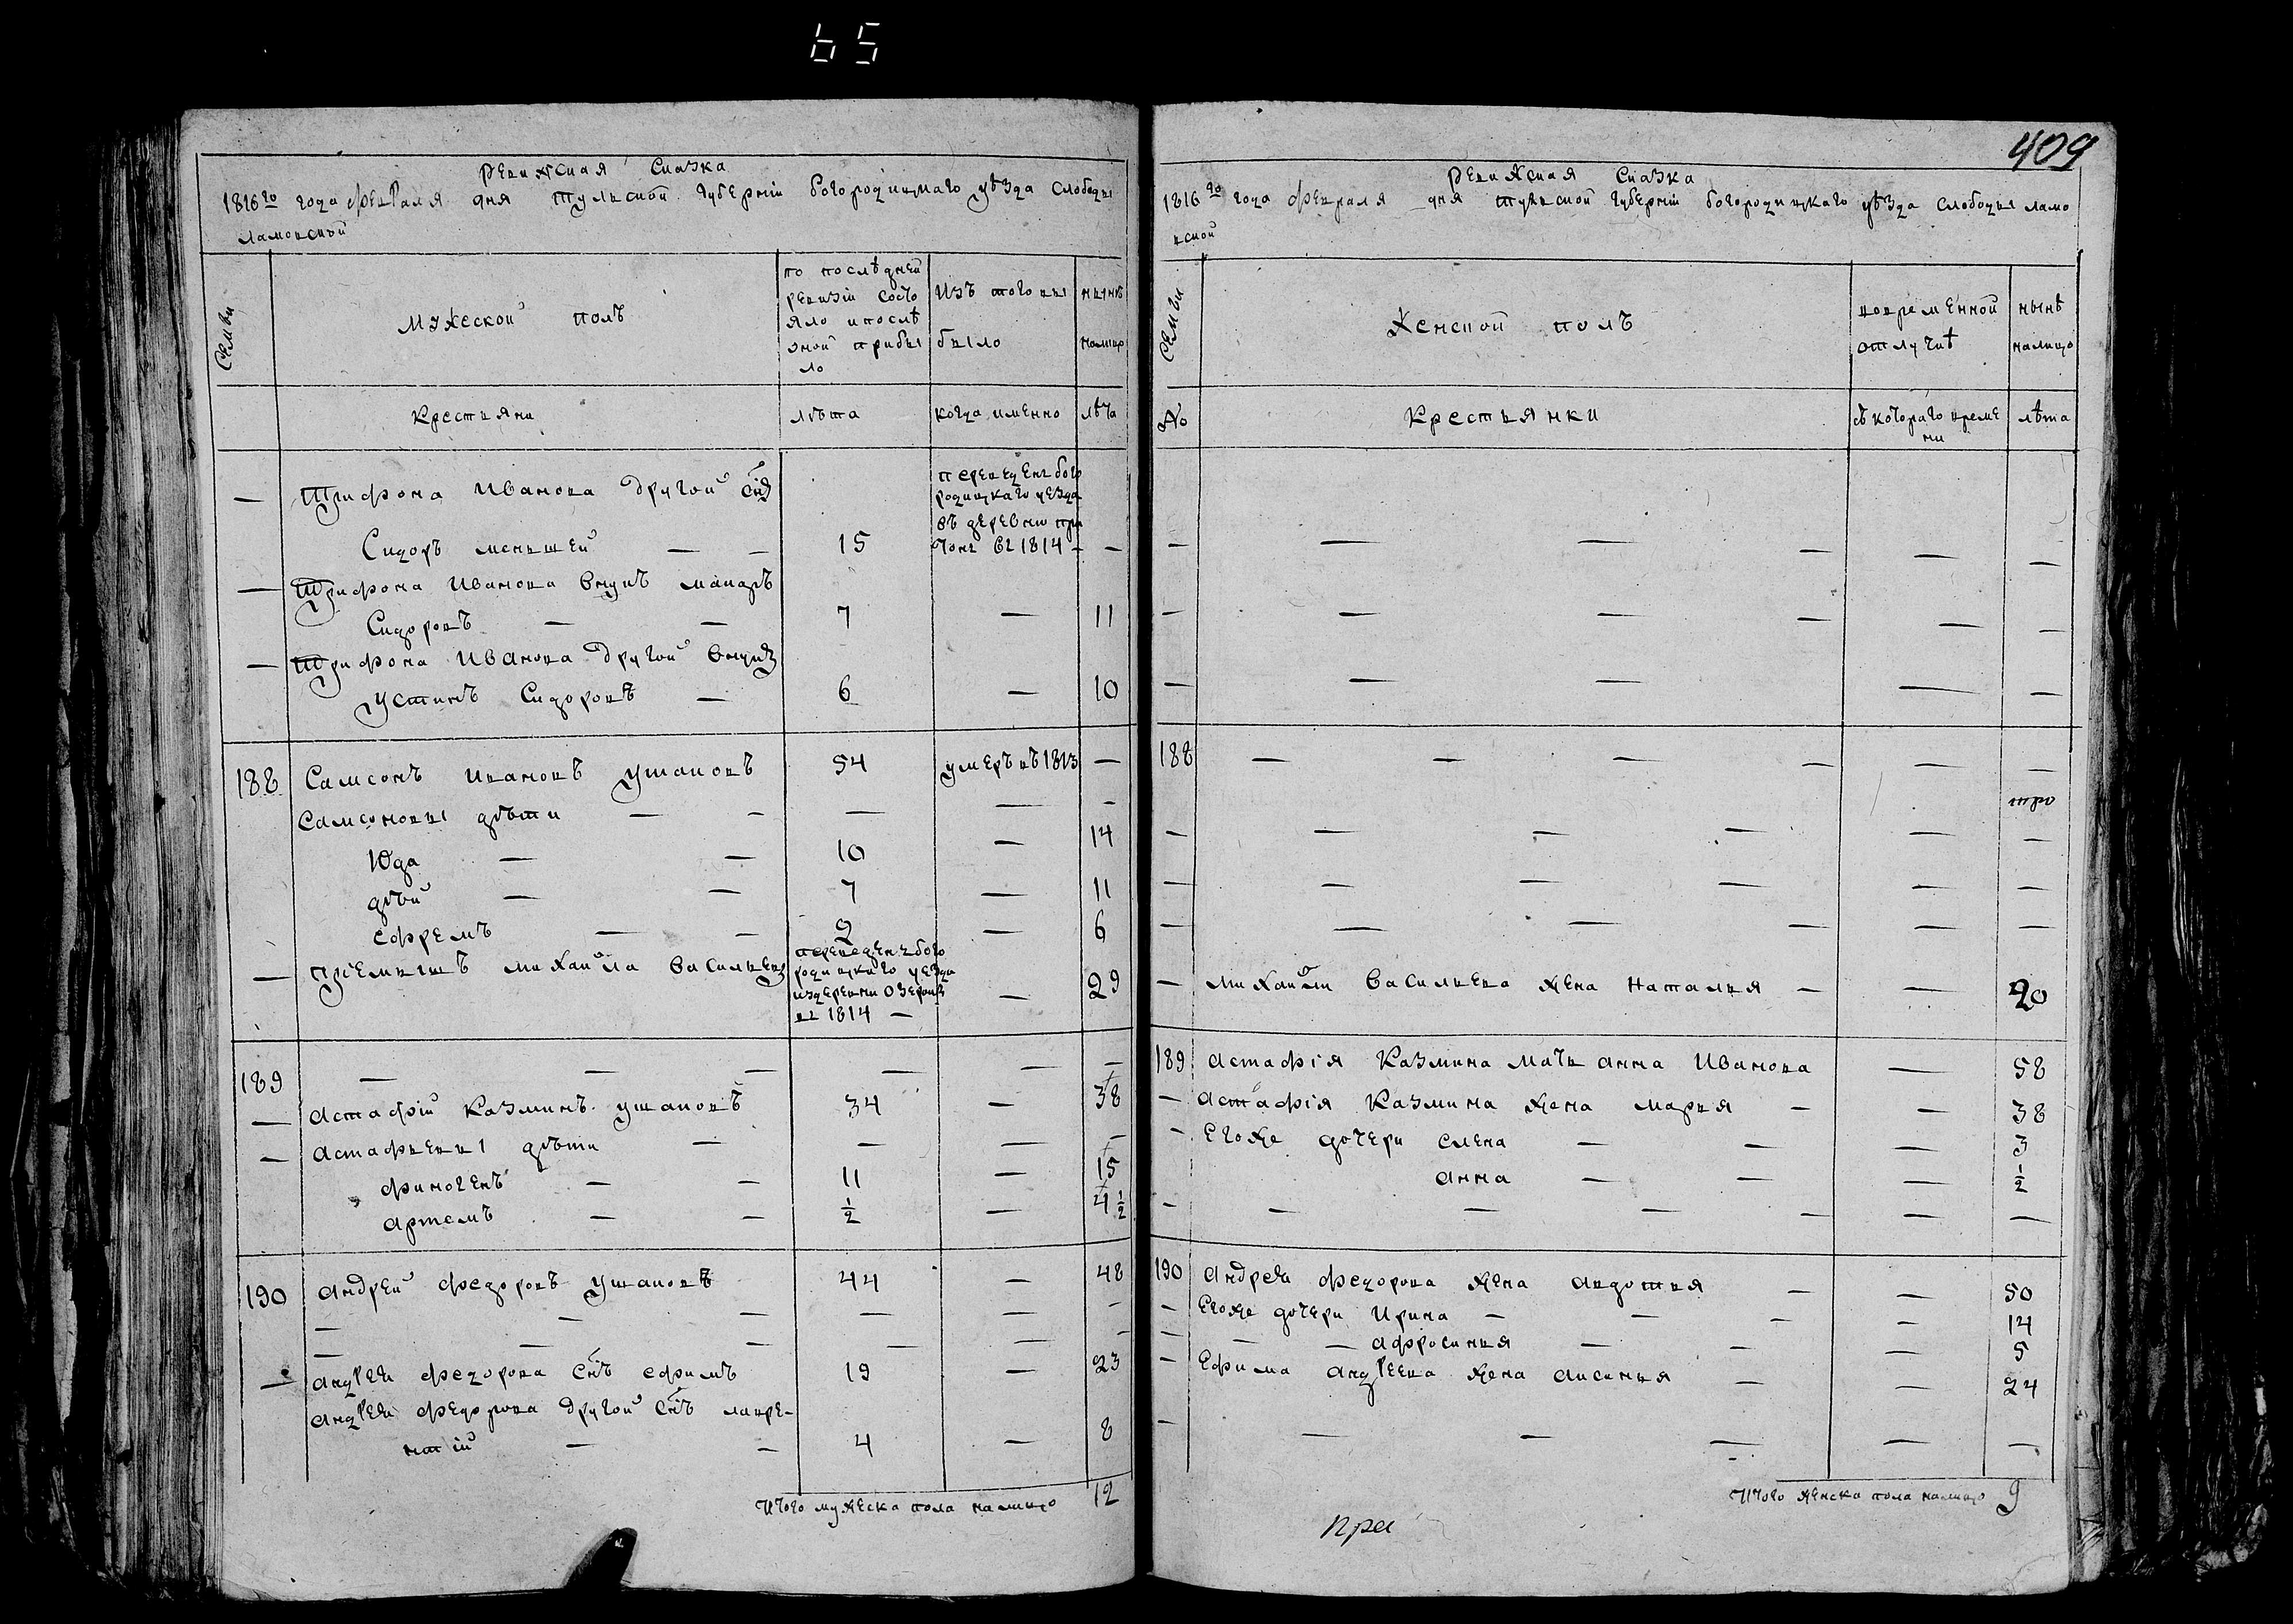 65
409
Ревижская Сказка
1816го года февраля дня Тульской Губерніи богородицкаго уѣзда Слободы
Ламовской
Семьи
Мужеской полъ
по послѣдней
ревизіи состо
яло и послѣ
оной прибы
ло
Изъ того вы
было
нынѣ
налицо
Крестьяни
лѣта
когда именно
лѣта
— Трифона Иванова другой снъ
Сидоръ меньшей — — 15
переведенъ бого
родицкаго уезда
въ деревню при
тонъ въ 1814 — —
— Трифона Иванова внукъ макаръ
Сидоровъ — — 7 — 11
— Трифона Иванова другой внукъ
Устинъ Сидоровъ — 6 — 10
188 Самсонъ Ивановъ Ушаковъ 54 умеръ въ 1813 —
Самсоновы дѣти — — — — —
Юда — — 10 — 14
дѣй — — 7 — 11
ефремъ — — 2 — 6
— пріемышъ михайла васильевъ
переведенъ бого
родицкаго уезда
из деревни Озерокъ
въ 1814 — — 29
189 — — — — — —
— Астафій Казминъ Ушаковъ 34 — 38
— Астафьевы дѣти — — — —
финогенъ — — 11 — 15
артемъ — — ½ — 4½
190 Андрей Федоровъ Ушаковъ 44 — 48
— — — — — —
— — — — — —
— Андрея Федорова снъ ефимъ 19 — 23
Андрея Федорова другой снъ лавре-
нтій — — 4 — 8
Итого мужеска пола налицо 12
Ревижская Сказка
1816го года февраля дня Тульской Губерніи богородицкаго уѣзда Слободы Ламо
вской
Семьи
Женской полъ
во временной
отлучкѣ
нынѣ
налицо
№
Крестьянки
съ котораго време
ни
лѣта
— — — — — —
— — — — — —
— — — — — —
188 — — — — — —
— — — — — —
— — — — — —
— — — — — —
— Михайлы Васильева жена Наталья — — 20
189 Астафія Казмина мать Анна Иванова — 58
— Астафія Казмина жена Марья — — 38
— Егоже дочери елена — — — 3
анна — — — ½
— — — — — — —
190 Андрея Федорова жена Авдотья — — 50
— Егоже дочери Ирина — — — — 14
— — — Афросинья — — — 5
— Ефима Андреева жена Аксинья — — 24
— — — — — —
Итого женска пола налицо 9